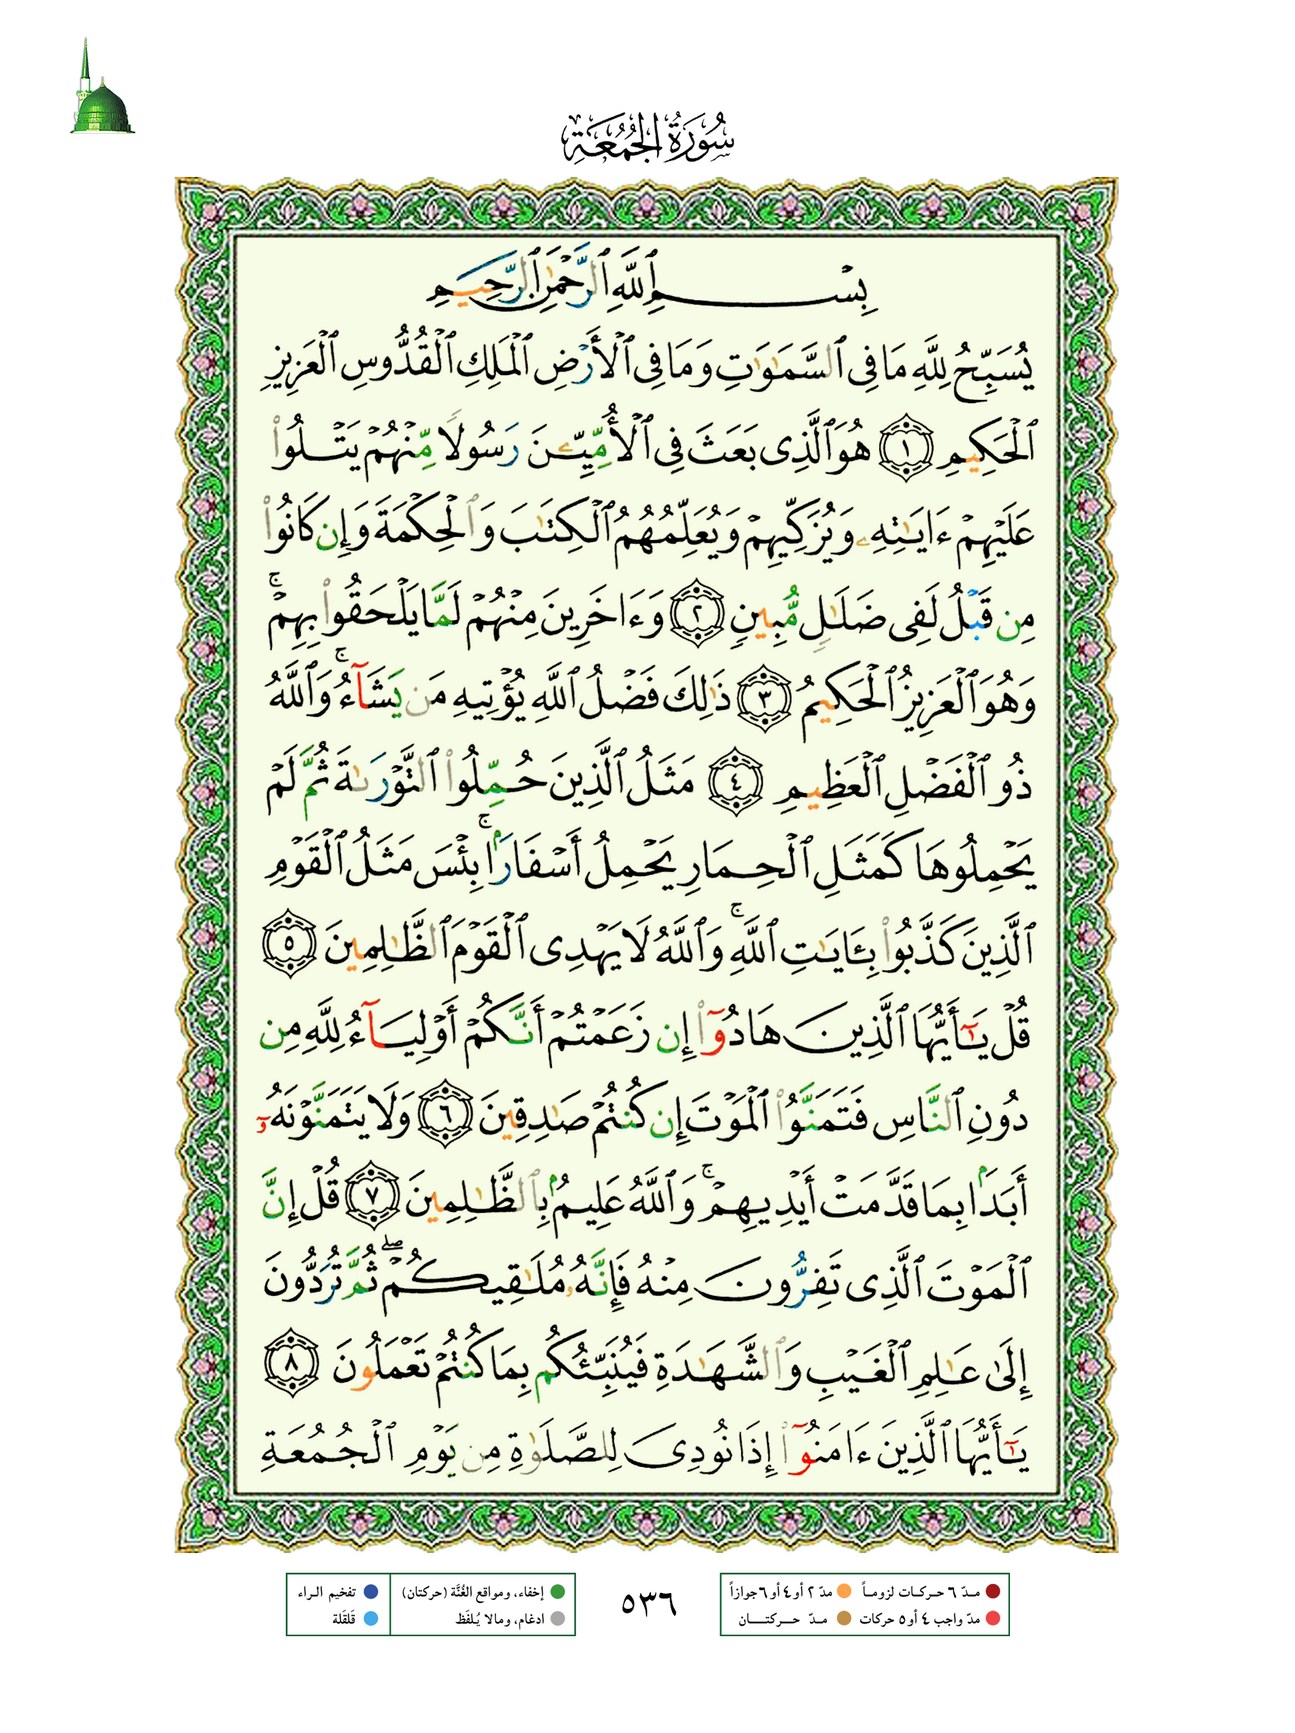 سُورَةُ الجُمُعَةِ
بِسْمِ ٱللَّهِ ٱلرَّحْمَٰنِ ٱلرَّحِيمِ
يُسَبِّحُ لِلَّهِ مَا فِى ٱلسَّمَٰوَٰتِ وَمَا فِى ٱلْأَرْضِ ٱلْمَلِكِ ٱلْقُدُّوسِ ٱلْعَزِيزِ
ٱلْحَكِيمِ ١ هُوَ ٱلَّذِى بَعَثَ فِى ٱلْأُمِّيِّۦنَ رَسُولًا مِّنْهُمْ يَتْلُوا۟
عَلَيْهِمْ ءَايَٰتِهِۦ وَيُزَكِّيهِمْ وَيُعَلِّمُهُمُ ٱلْكِتَٰبَ وَٱلْحِكْمَةَ وَإِن كَانُوا۟
مِن قَبْلُ لَفِى ضَلَٰلٍ مُّبِينٍ ٢ وَءَاخَرِينَ مِنْهُمْ لَمَّا يَلْحَقُوا۟ بِهِمْ ۚ
وَهُوَ ٱلْعَزِيزُ ٱلْحَكِيمُ ٣ ذَٰلِكَ فَضْلُ ٱللَّهِ يُؤْتِيهِ مَن يَشَآءُ ۚ وَٱللَّهُ
ذُو ٱلْفَضْلِ ٱلْعَظِيمِ ٤ مَثَلُ ٱلَّذِينَ حُمِّلُوا۟ ٱلتَّوْرَىٰةَ ثُمَّ لَمْ
يَحْمِلُوهَا كَمَثَلِ ٱلْحِمَارِ يَحْمِلُ أَسْفَارًۢا ۚ بِئْسَ مَثَلُ ٱلْقَوْمِ
ٱلَّذِينَ كَذَّبُوا۟ بِـَٔايَٰتِ ٱللَّهِ ۚ وَٱللَّهُ لَا يَهْدِى ٱلْقَوْمَ ٱلظَّٰلِمِينَ ٥
قُلْ يَٰٓأَيُّهَا ٱلَّذِينَ هَادُوٓا۟ إِن زَعَمْتُمْ أَنَّكُمْ أَوْلِيَآءُ لِلَّهِ مِن
دُونِ ٱلنَّاسِ فَتَمَنَّوُا۟ ٱلْمَوْتَ إِن كُنتُمْ صَٰدِقِينَ ٦ وَلَا يَتَمَنَّوْنَهُۥٓ
أَبَدًۢا بِمَا قَدَّمَتْ أَيْدِيهِمْ ۚ وَٱللَّهُ عَلِيمٌۢ بِٱلظَّٰلِمِينَ ٧ قُلْ إِنَّ
ٱلْمَوْتَ ٱلَّذِى تَفِرُّونَ مِنْهُ فَإِنَّهُۥ مُلَٰقِيكُمْ ۖ ثُمَّ تُرَدُّونَ
إِلَىٰ عَٰلِمِ ٱلْغَيْبِ وَٱلشَّهَٰدَةِ فَيُنَبِّئُكُم بِمَا كُنتُمْ تَعْمَلُونَ ٨
يَٰٓأَيُّهَا ٱلَّذِينَ ءَامَنُوٓا۟ إِذَا نُودِىَ لِلصَّلَوٰةِ مِن يَوْمِ ٱلْجُمُعَةِ
مدّ ٦ حركات لزوماً مدّ ٢ أو ٤ أو ٦ جوازاً
مدّ واجب ٤ أو ٥ حركات مدّ حركتان
٥٣٦
إخفاء، ومواقع الغُنَّة (حركتان) تفخيم الراء
ادغام، ومالا يُلفَظ قَلقَلة